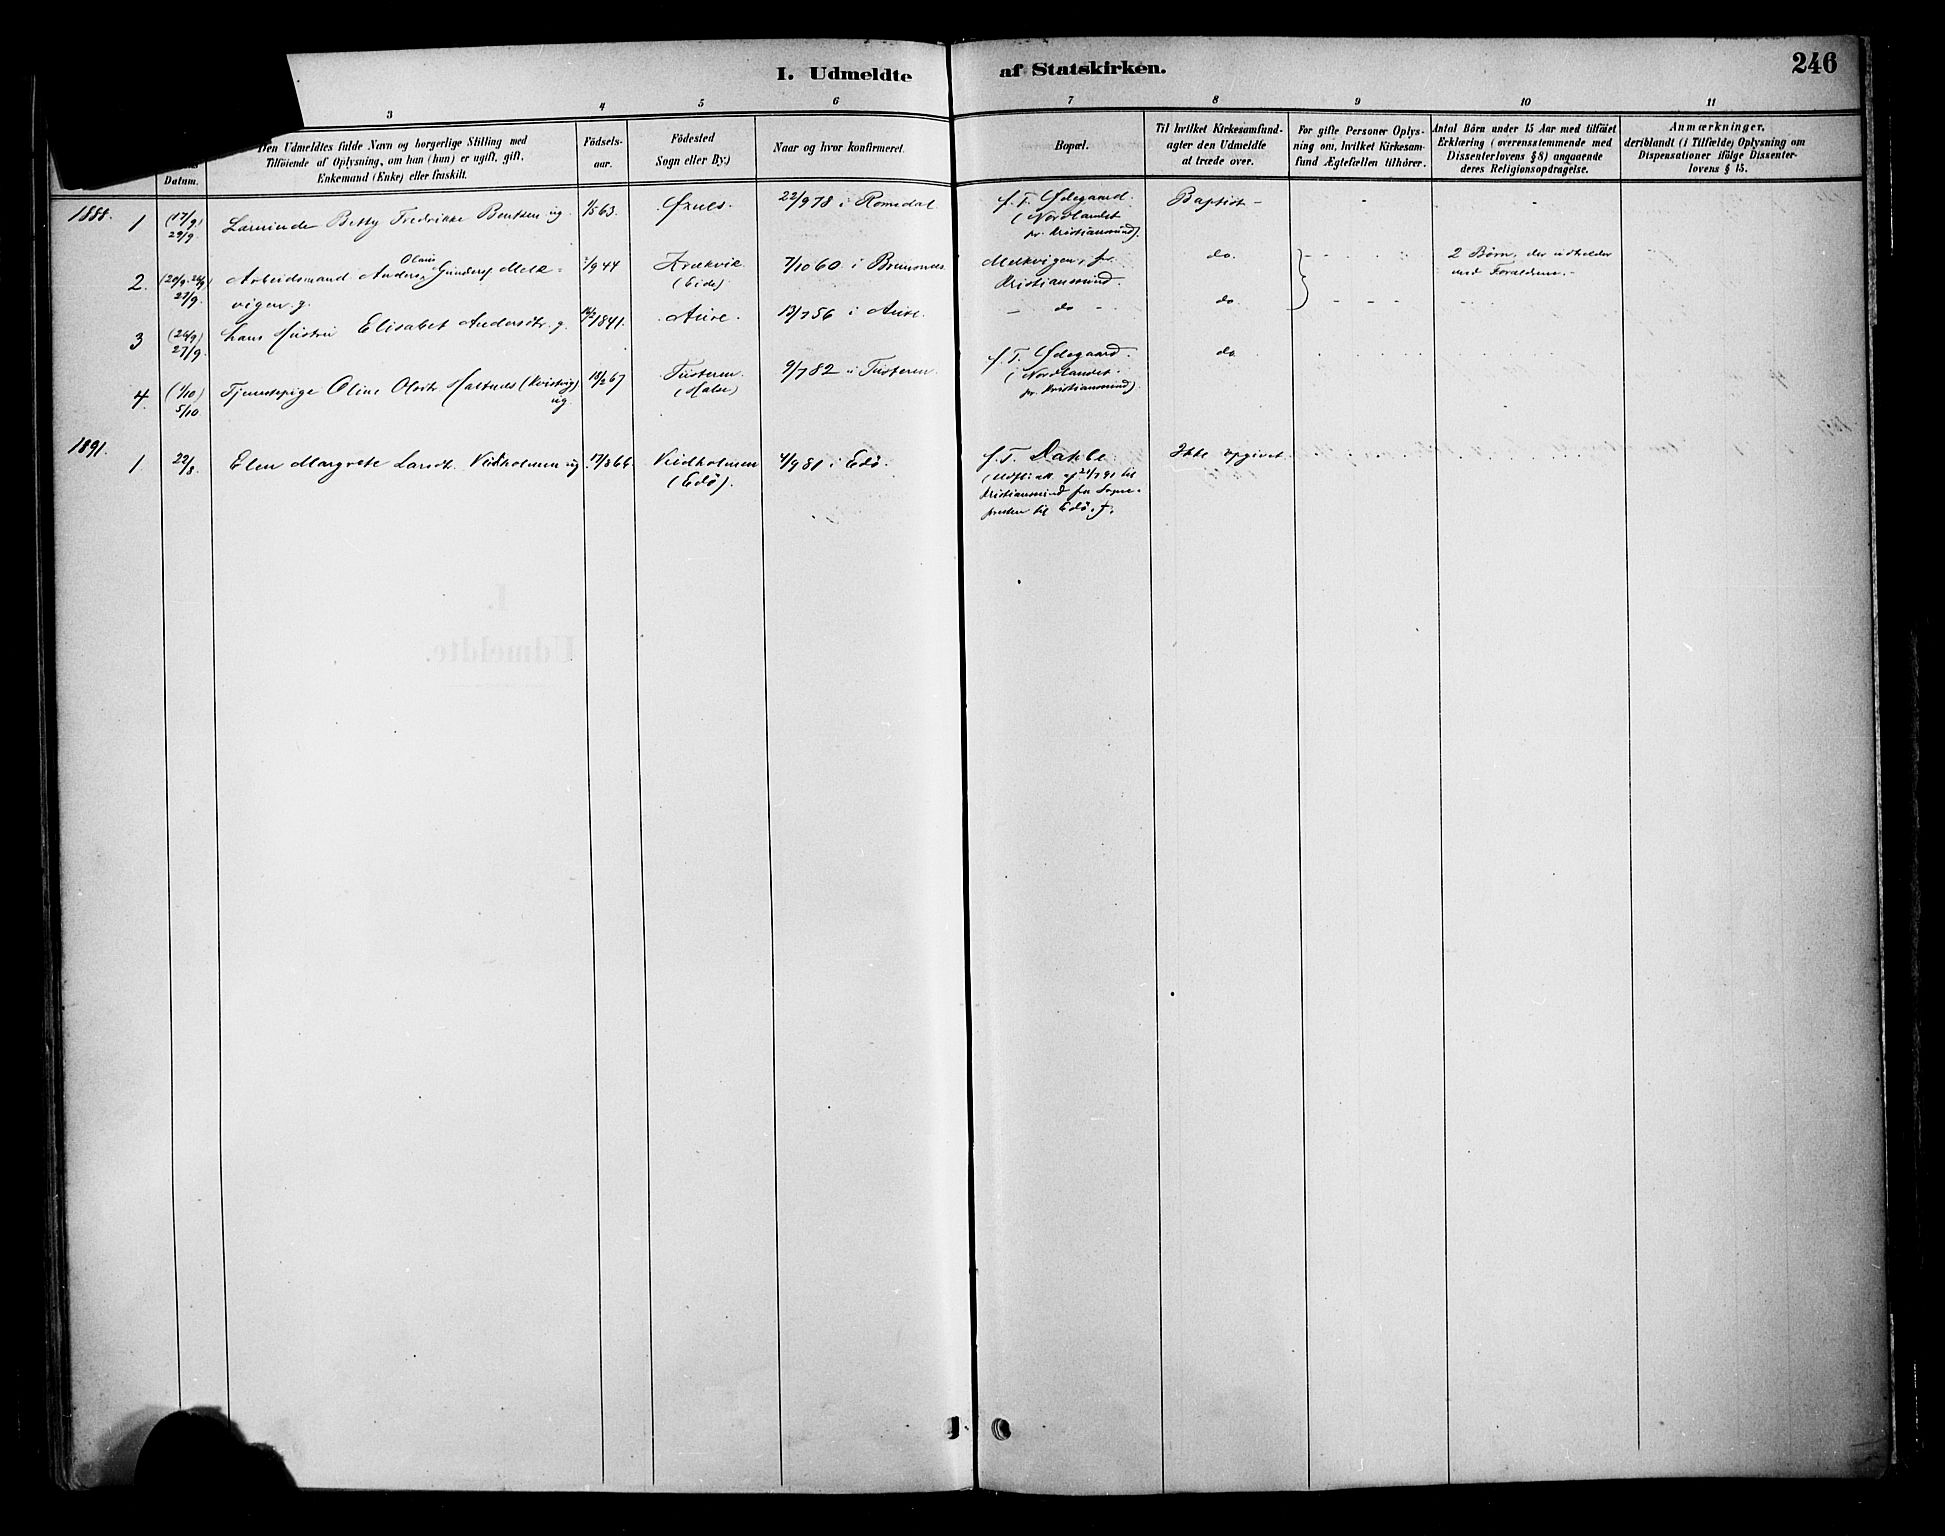 I. Udmeldte af Statskirken. 246
3 4 5 6 7 8 9 10 11
Datum.
Den Udmeldtes fulde Navn og borgerlige Stilling med
Tilføiende af Oplysning, om han (hun) er ugift, gift,
Enkemand (Enke) eller fraskilt.
Födsels-
aar.
Födested
Sogn eller By.)
Naar og hvor konfirmeret.
Bopæl.
Til hvilket Kirkesamfund-
agter den Udmeldte
at træde over.
For gifte Personer Oplys-
ning om, hvilket Kirkesam-
fund Ægtefællen tilhörer.
Antal Börn under 15 Aar med tilföiet
Erklæring (overensstemmende med
Dissenterlovens § 8) angaaende
deres Religionsopdragelse.
Anmærkninger,
deriblandt (i Tilfælde) Oplysning om
Dispensationer ifölge Dissenter-
lovens § 15.
1888. 1 (17/9) 29/9. Lærerinde Betty Fredrikke Bentzen ug. 1/5 63. 22/9 78 i Romsdal f. T. Ødegaard.
(Nordlandet
pr. Kristiansund).
Baptist –
2. 27/9. Arbeidsmand Anders Olaus Gunders Melk-
vigen. g. 1/9 44 (Eide) 7/10 60 i Bremsnes Melkvigen, pr.
Kristiansund. do. 2 Börn, der indholder
med Forældrene. –
3 (26/9) 27/9. hans Hustru Elisabet Andersdr. g. 14/2 1841. Aure. 13/7 56 i Aure. – do – do.
4. (1/10) 5/10. Tjenestepige Oline Olsdtr Haltnes (Kvistvig)
ug. 18/2 67 Tusteren.
(Halse) 9/7 82 i Tusteren. f. T. Ødegaard.
(Nordlandet.
pr. Kristiansund). do
1891. 1 22/8. Elen Margrete Larsdt. Veidholmen ug. 17/3 66. Veidholmen
(Edö). 4/9 81 i Edö. f. T. Dahle.
(Udfl: att. af 21/7 91 til
Kristiansund fra Sogne-
presten til Edö. Ikke opgivet.
I.
Udmeldte.